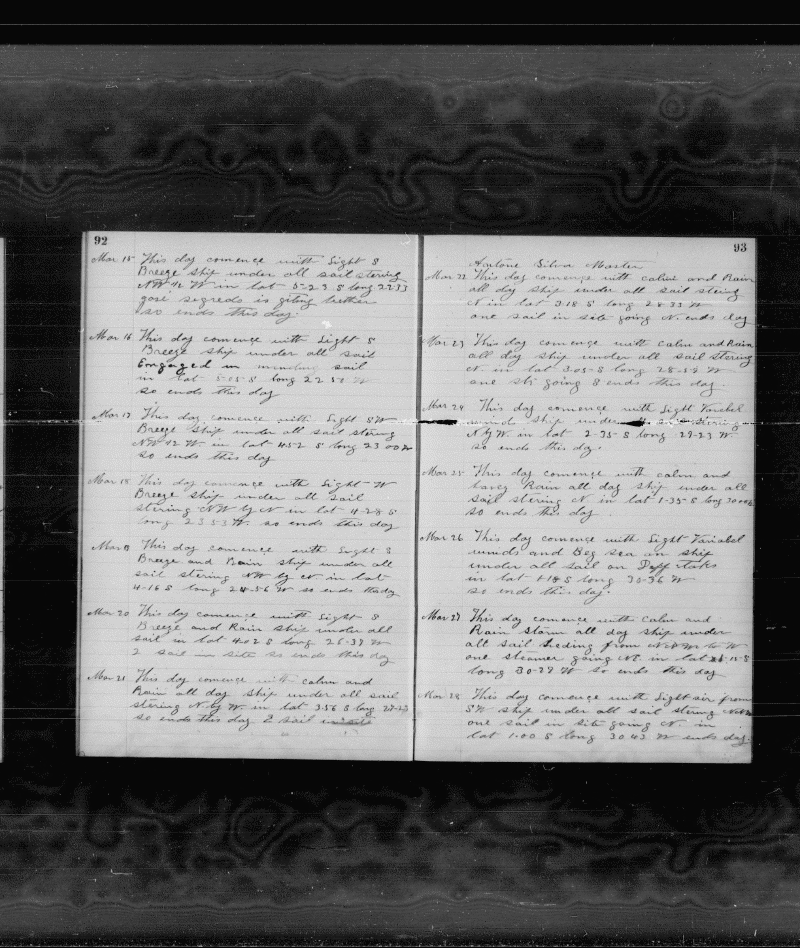 92
Mar 15 This day comence with Light S
Breeze Ship under all sail stering
NW 1/2 W in lat 5-23 S long 22-33
so ends this day.
Mar 16 This day comence with Light S
Breeze Ship under all sail
Engaged in mending sail
in lat 5-05-S long 22 52 W
so ends this day
Mar 17 This day comence with Light SW
Breeze Ship under all sail stering
NW 1/2 W in lat 4-52 S long 23 00 W
so ends this day
Mar 18 This day comence with Light W
Breeze Ship under all sail
stering NW by N in lat 4-28 S
long 23 53 W. so ends this day
Mar This day comence with Light S
Breeze and Rain ship under all
sail stering NW by N in lat
4-16 S long 24-56 W so ends day
Mar 20 This day comence with Light S
Breeze and Rain ship under all
sail in lat 4-02 S long 26-37 W
2 sail in site so ends this day
Mar 21 This day comence with calm and
Rain all day ship under all sail
stering N. by W. in lat 3-56 S long
so ends this day 2 sail in site
93
Antone Silva Master
Mar 22 This day comence with calm and Rain
all day ship under all sail stering
N in lat 3-18 S long 28-33 W
one sail in site going N. ends day
Mar 23 This day comence with calm and Rain
all day ship under all sail stering
N in lat 3-05-S long 28-59 W
one str going S ends this day.
Mar 24 This day comence with Light Varebel
winds ship under stering
N by W. in lat 2-35-S long 29-23 W.
so ends this day.
Mar 25 This day comence with calm and
havey Rain all day ship under all
sail stering N in lat 1-35-S long
so ends this day
Mar 26 This day comence with Light Variabel
winds and Beg sea on ship
under all sail on Deff Taks
in lat 1-18 S long 30-36 W
so ends this day.
Mar 27 This day comence with calm and
Rain storm all day ship under
all sail heding from to W
one steamer going N in lat
long 30-29 W so ends this day
Mar 28 This day comence with Light air from
SW ship under all sail stering
one sail in site going N. in
lat 1-00 S long 30 43 W ends day.